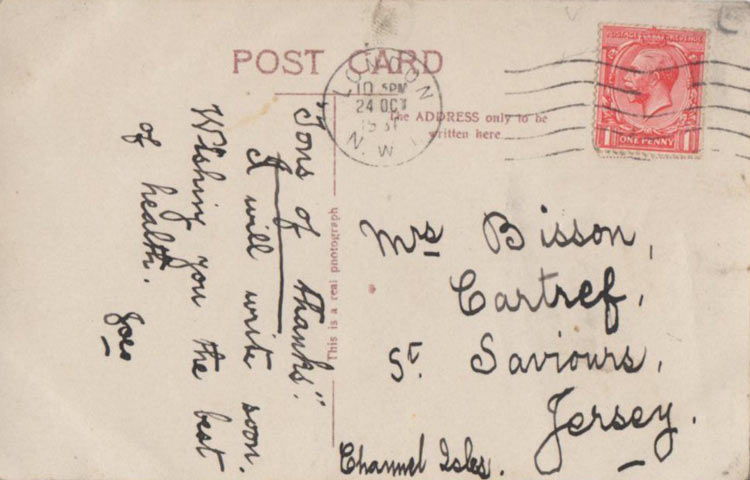 POST CARD
LONDON
24 OCT
N.W.
The ADDRESS only to be
written here
POSTAGE REVENUE
1 ONE PENNY 1
This is a real photograph
"Tons of thanks".
I will write soon.
Wishing you the best
of health.
Mrs Bisson,
Cartref,
St. Saviours,
Jersey.
Channel Isles.